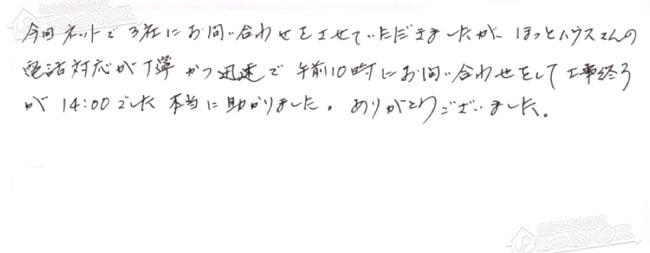 今回ネットで3社にお問い合わせをさせていただきましたが、ほっとハウスさんの
電話対応が丁寧かつ迅速で午前10時にお問い合わせをして工事終了
が14:00でした 本当に助かりました。ありがとうございました。
ほっとハウス